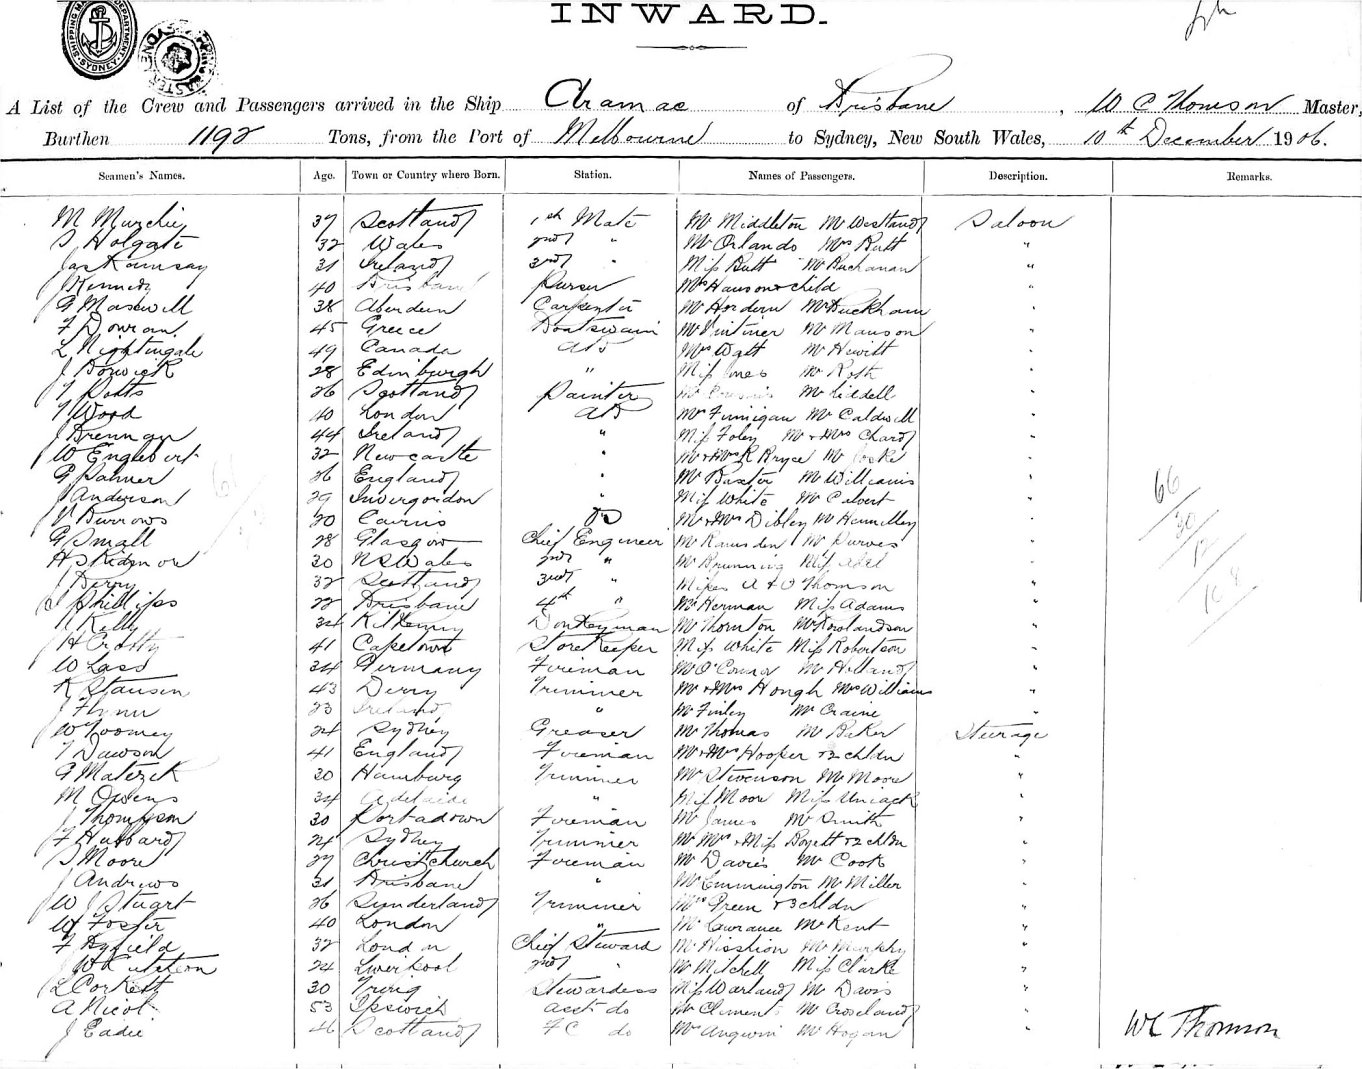 INWARD.
SHIPPING MASTER'S DEPARTMENT SYDNEY
A List of the Crew and Passengers arrived in the Ship Aramac of Brisbane, W C Thomson Master,
Burthen 1192 Tons, from the Port of Melbourne to Sydney, New South Wales, 10th December 1906.
Seamen's Names. Age. Town or Country where Born. Station. Names of Passengers. Description. Remarks.
M Murchie 37 Scotland 1st Mate Mr Middleton Mr Westland Saloon
T Holgate 32 Wales 2nd " Mr Orlando Mrs Butt "
Jas Ramsay 31 Ireland 3rd " Miss Butt Mr Buchanan "
J Kennedy 40 Brisbane Purser Mrs Hanson & child "
G Maxwell 38 Aberdeen Carpenter Mr Hordern Mr Puckham "
F Dowran 45 Greece Boatswain Mr Vintiner Mr Manson "
L Nightingale 49 Canada AB Mrs Watt Mr Hewitt "
J Borwick 28 Edinburgh " Miss Jones Mr Roth "
T Potts 26 Scotland Painter Mr Liddell "
T Wood 40 London AB Mr Finnigan Mr Caldwell "
J Brennan 44 Ireland " Miss Foley Mr & Mrs Chard "
W Englebert 32 Newcastle " Mr & Mrs R Bryce Mr "
G Palmer 26 England " Mr Baxter Mr Williams "
J Anderson 29 Invergordon " Miss White Mr Calvert "
V Burrows 20 Cairns OS Mr & Mrs Dibley Mr Hannelley "
G Small 28 Glasgow Chief Engineer Mr Ramsden Mr Purves "
H Skidmore 30 NSWales 2nd " Mr Brunning Miss Abel "
J Berry 32 Scotland 3rd " Misses A & O Thomson "
S Phillips 22 Brisbane 4th " Mr Herman Miss Adams "
N Kelly 34 Kilkenny Donkeyman Mr Thornton Mr Rowlandson "
H Crosby 41 Capetown Storekeeper Miss White Miss Robertson "
W Lass 34 Germany Fireman Mr O'Connor Mr Holland "
K Stausen 43 Derry Trimmer Mr & Mrs Hough Mrs Williams "
J Flynn 23 Ireland " Mr Finley Mr Craine "
W Toomey 24 Sydney Greaser Mr Thomas Mr Baker Steerage
T Dawson 41 England Fireman Mr & Mrs Hooper & 2 chldn "
G Matezck 20 Hamburg Trimmer Mr Stevenson Mr Moore "
M Owens 34 Adelaide " Miss Moore Miss Uniack "
J Thompson 30 Portadown Fireman Mr James Mr Smith "
F Hubbard 24 Sydney Trimmer Mr Mrs & Miss Boyett & 2 chldn "
T Moore 27 Christchurch Fireman Mr Davies Mr Cook "
J Andrews 31 Brisbane " Mr Emmington Mr Miller "
W J Stuart 26 Sunderland Trimmer Mrs Green & 3 chldn "
W Foster 40 London " Mr Lawrance Mr Kent "
F Byfield 32 London Chief Steward Mr Hisstion Mr Murphy "
24 Liverpool 2nd " Mr Mitchell Miss Clarke "
L Corkett 30 Tring Stewardess Miss Warland Mr Davis "
A Nicol 53 Ipswich asst do Mr Clements Mr Croseland "
J Eadie 46 Scotland FC do Mr Angwin Mr Hogan "
66
30
12
108
WC Thomson